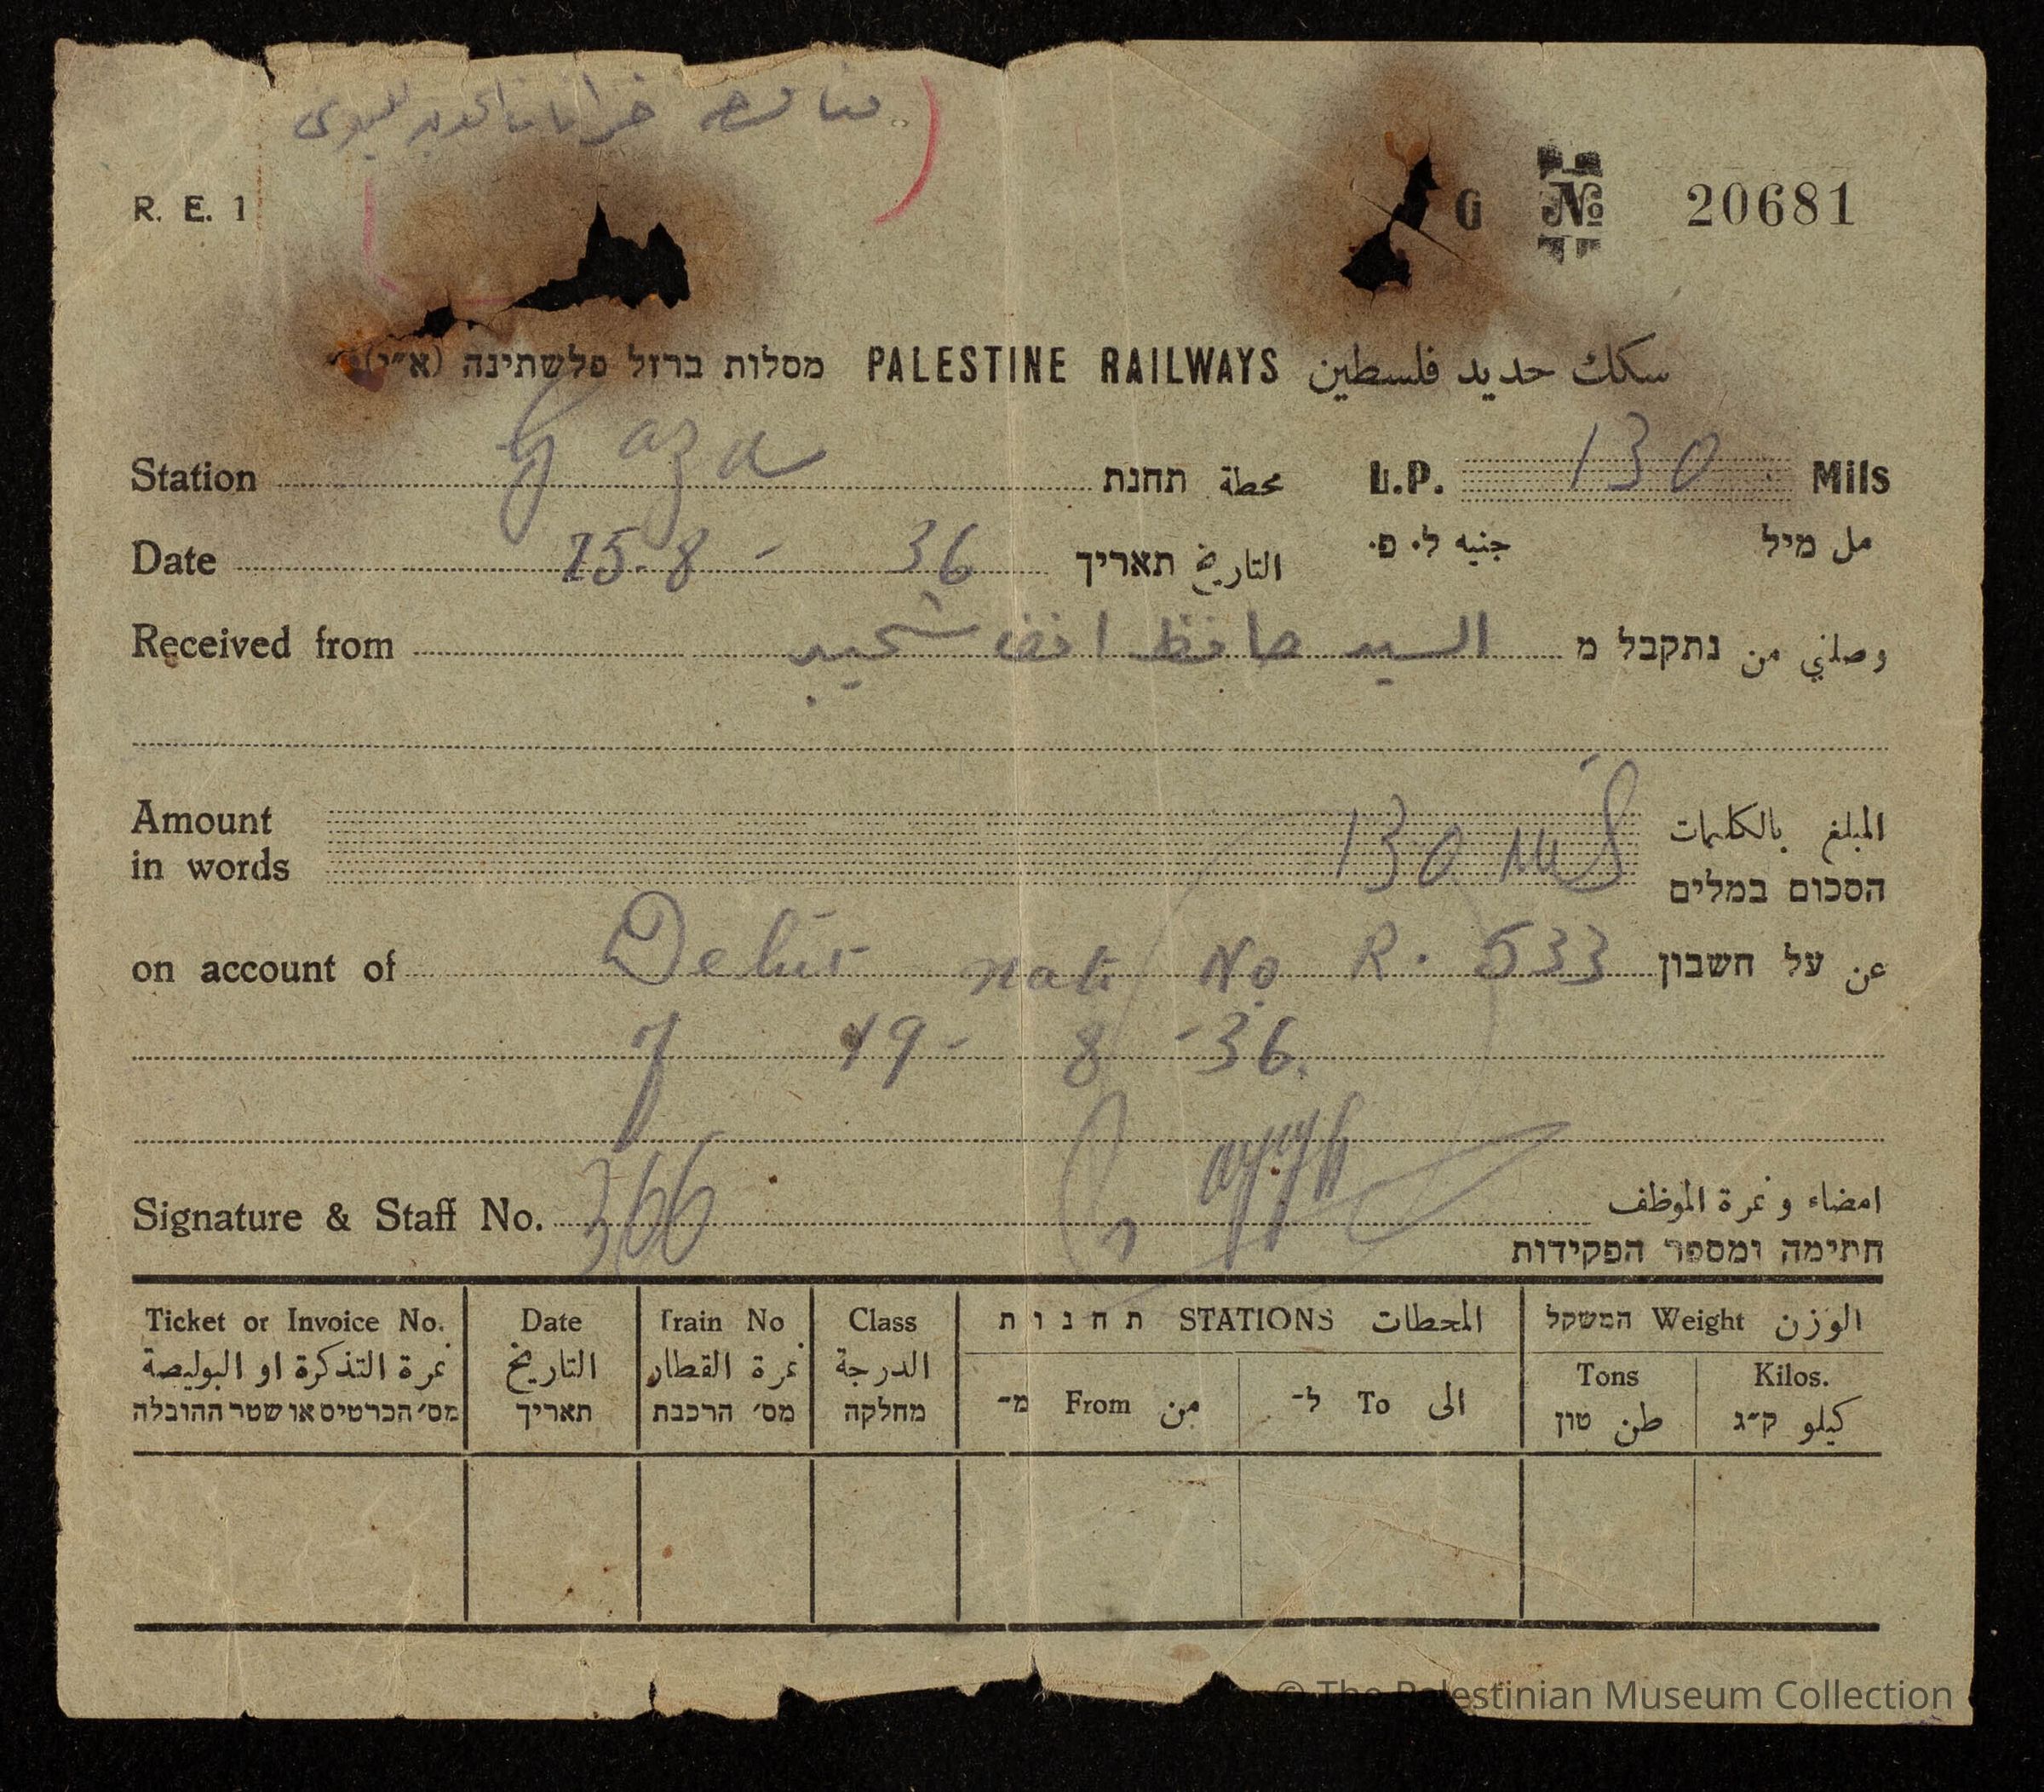 R. E. 1 G No 20681
מסלות ברזל פלשתינה (א״י) PALESTINE RAILWAYS سكك حديد فلسطين
Station Gaza תחנת محطة L.P. 130 Mils
جنيه ל. פ. مل מיל
Date 25.8 - 36 תאריך التاريخ
Received from السيد حافظ נתקבל מ وصلني من
Amount in words 130 Mils المبلغ بالكلمات
הסכום במלים
on account of No R. 533 על חשבון عن
19 - 8 - 36.
Signature & Staff No. 366 امضاء و نمرة الموظف
חתימה ומספר הפקידות
Ticket or Invoice No. Date Train No Class תחנות STATIONS المحطات המשקל Weight الوزن
نمرة التذكرة او البوليصة التاريخ نمرة القطار الدرجة מ- From من ל- To الى Tons Kilos.
מס׳ הכרטיס או שטר ההובלה תאריך מס׳ הרכבת מחלקה טון طن ק״ג كيلو
© The Palestinian Museum Collection